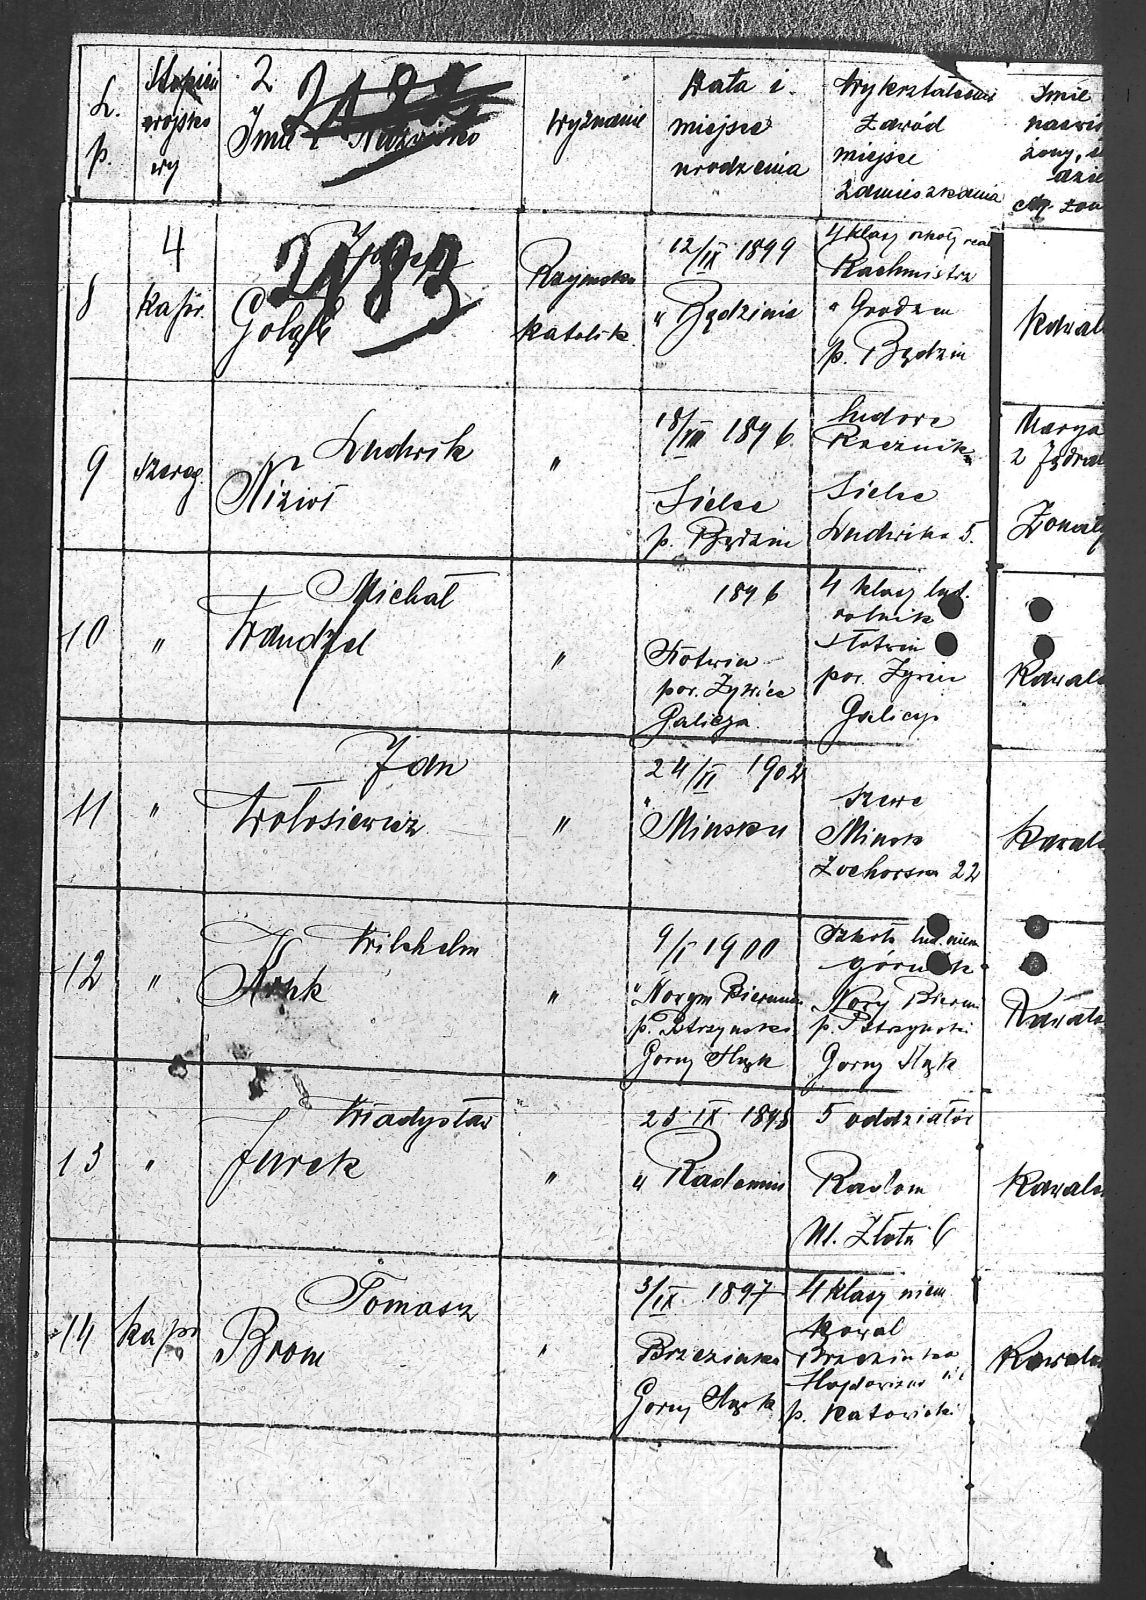 L. p.
Stopień wojsko wy
2
2182
Imię i Nazwisko
Wyznanie
Data i miejsce urodzenia
Wykształcenie zawód miejsce zamieszkania
Imię nazwis żony,
4
8
kapr.
2183
Józef
Gołąb
Rzymsko
katolik
12/IX 1899
w Będzinie
4 klasy szkoły real
Rachmistrz
w Grodźcu
p. Będzin
Kawal
9
szereg.
Ludwik
Nizioł
"
18/VIII 1896
Sielce
p. Będzin
Ludowe
Rzeźnik
Sielce
Ludwika 5.
Marya
z Jędrze
Żonaty
10
"
Michał
Wandzel
"
1896
Słotwin
pow. Żywiec
Galicja
4 klasy lud.
rolnik
Słotwin
pow. Żywiec
Galicja
Kawal
11
"
Jan
Wołosiewicz
"
24/II 1902
w Mińsku
szewc
Mińsk
Zochorska 22
Kawal
12
"
Wilchelm
"
9/I 1900
w Nowym Bieruniu
p. Pszczyński
Gorny Śląsk
Szkoła lud. niem
górnik
Nowy Bieruń
p. Pszczyński
Gorny Śląsk
Kawale
13
"
Władysław
Jurek
"
25 IX 1898
w Radomiu
5 oddziałów
Radom
Ul. Złota 6
Kawale
14
kapr
Tomasz
Brom
"
3/IX 1897
Brzezinka
Gorny Śląsk
4 klasy niem
kowal
Brzezinka
p. Katowicki
Kawale